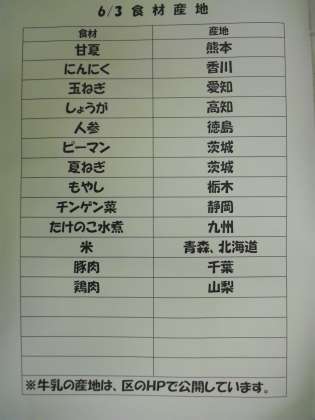 6/3 食材産地
食材 産地
甘夏 熊本
にんにく 香川
玉ねぎ 愛知
しょうが 高知
人参 徳島
ピーマン 茨城
夏ねぎ 茨城
もやし 栃木
チンゲン菜 静岡
たけのこ水煮 九州
米 青森、北海道
豚肉 千葉
鶏肉 山梨
※牛乳の産地は、区のHPで公開しています。